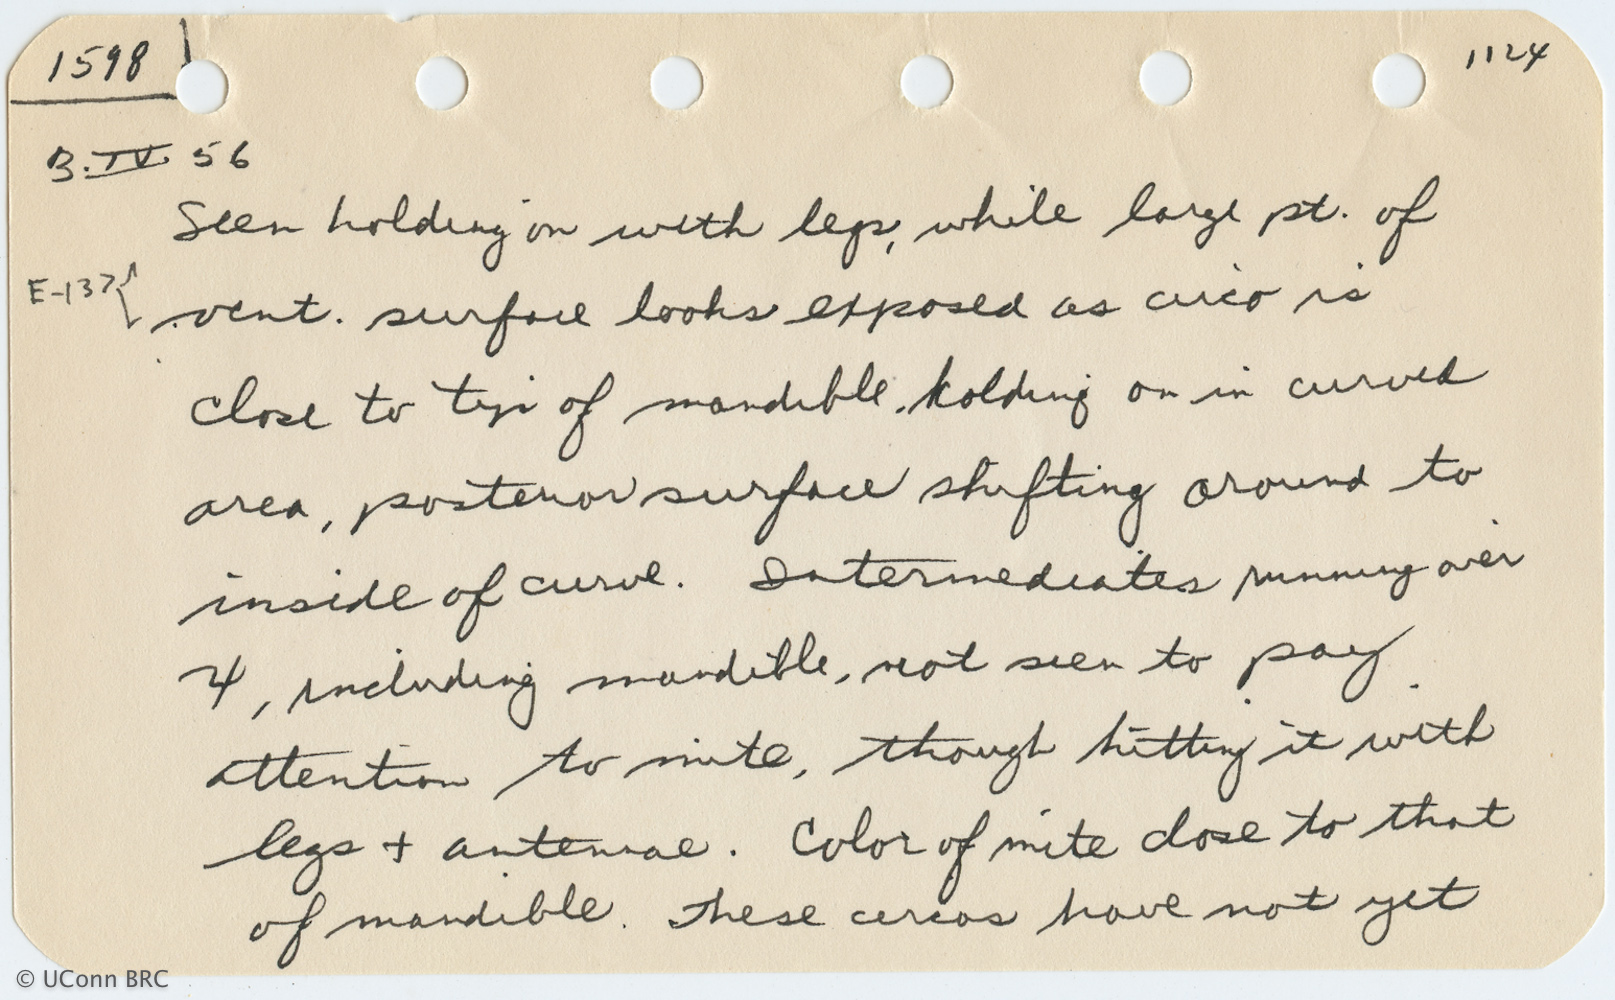 1598
1124
3.IV.56
Seen holding on with legs, while large pt. of
E-137 { vent. surface looks exposed as circo is
close to tip of mandible. Holding on in curved
area, posterior surface shifting around to
inside of curve. Intermediates running over
4, including mandible, not seen to pay
attention to mite, though hitting it with
legs + antennae. Color of mite close to that
of mandible. These circos have not yet
© UConn BRC